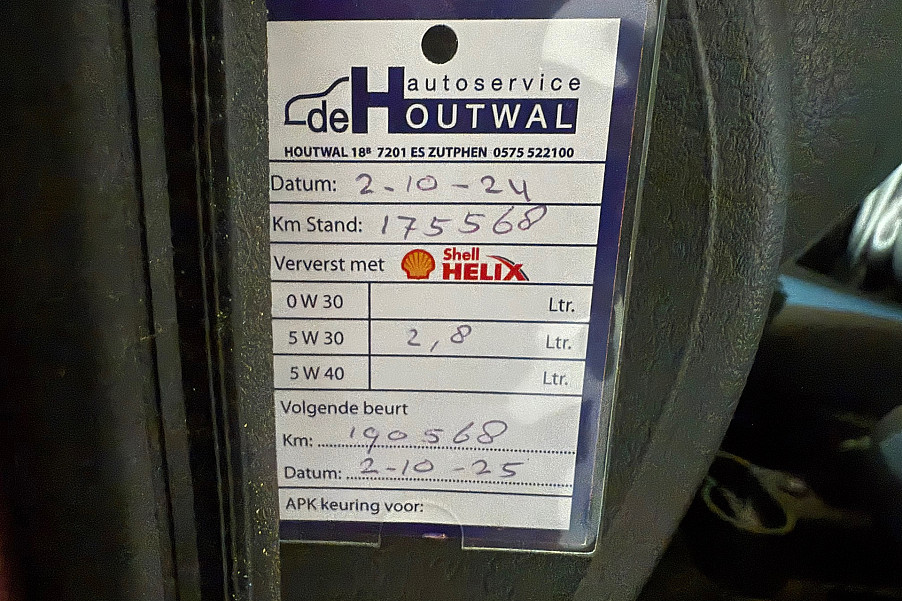 autoservice
de HOUTWAL
HOUTWAL 18B 7201 ES ZUTPHEN 0575 522100
Datum: 2-10-24
Km Stand: 175568
Ververst met Shell HELIX
0 W 30 Ltr.
5 W 30 2,8 Ltr.
5 W 40 Ltr.
Volgende beurt
Km: 190568
Datum: 2-10-25
APK keuring voor: